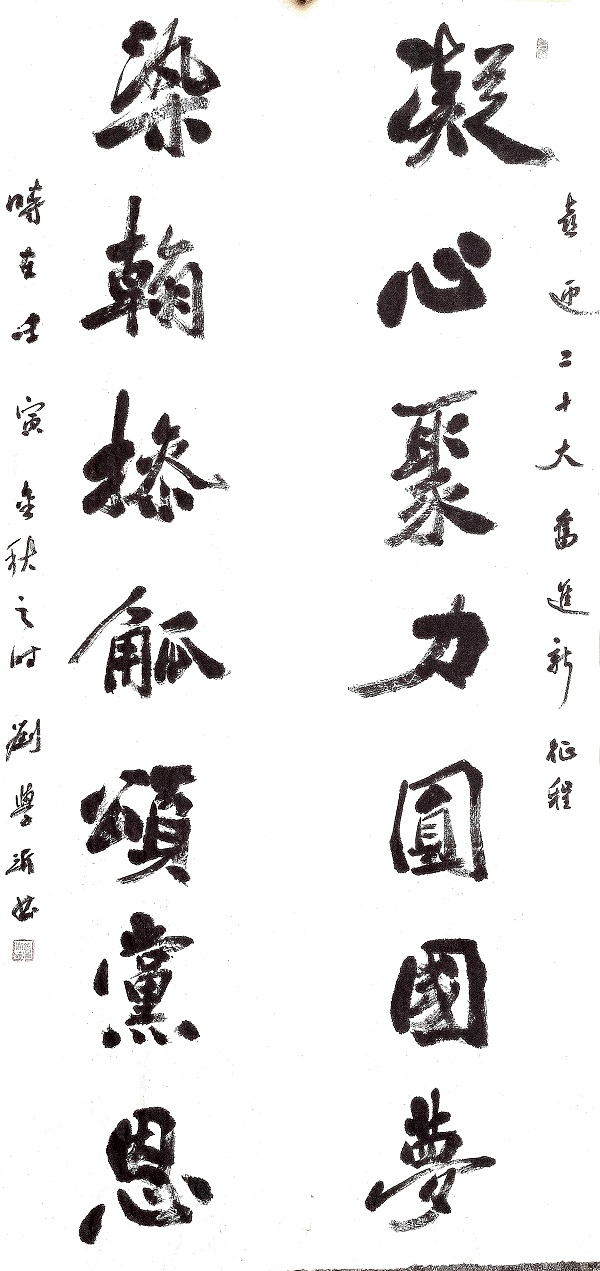 喜迎二十大奮進新征程
凝心聚力圓國夢
染翰操觚頌黨恩
時在壬寅金秋之时劉學沂書